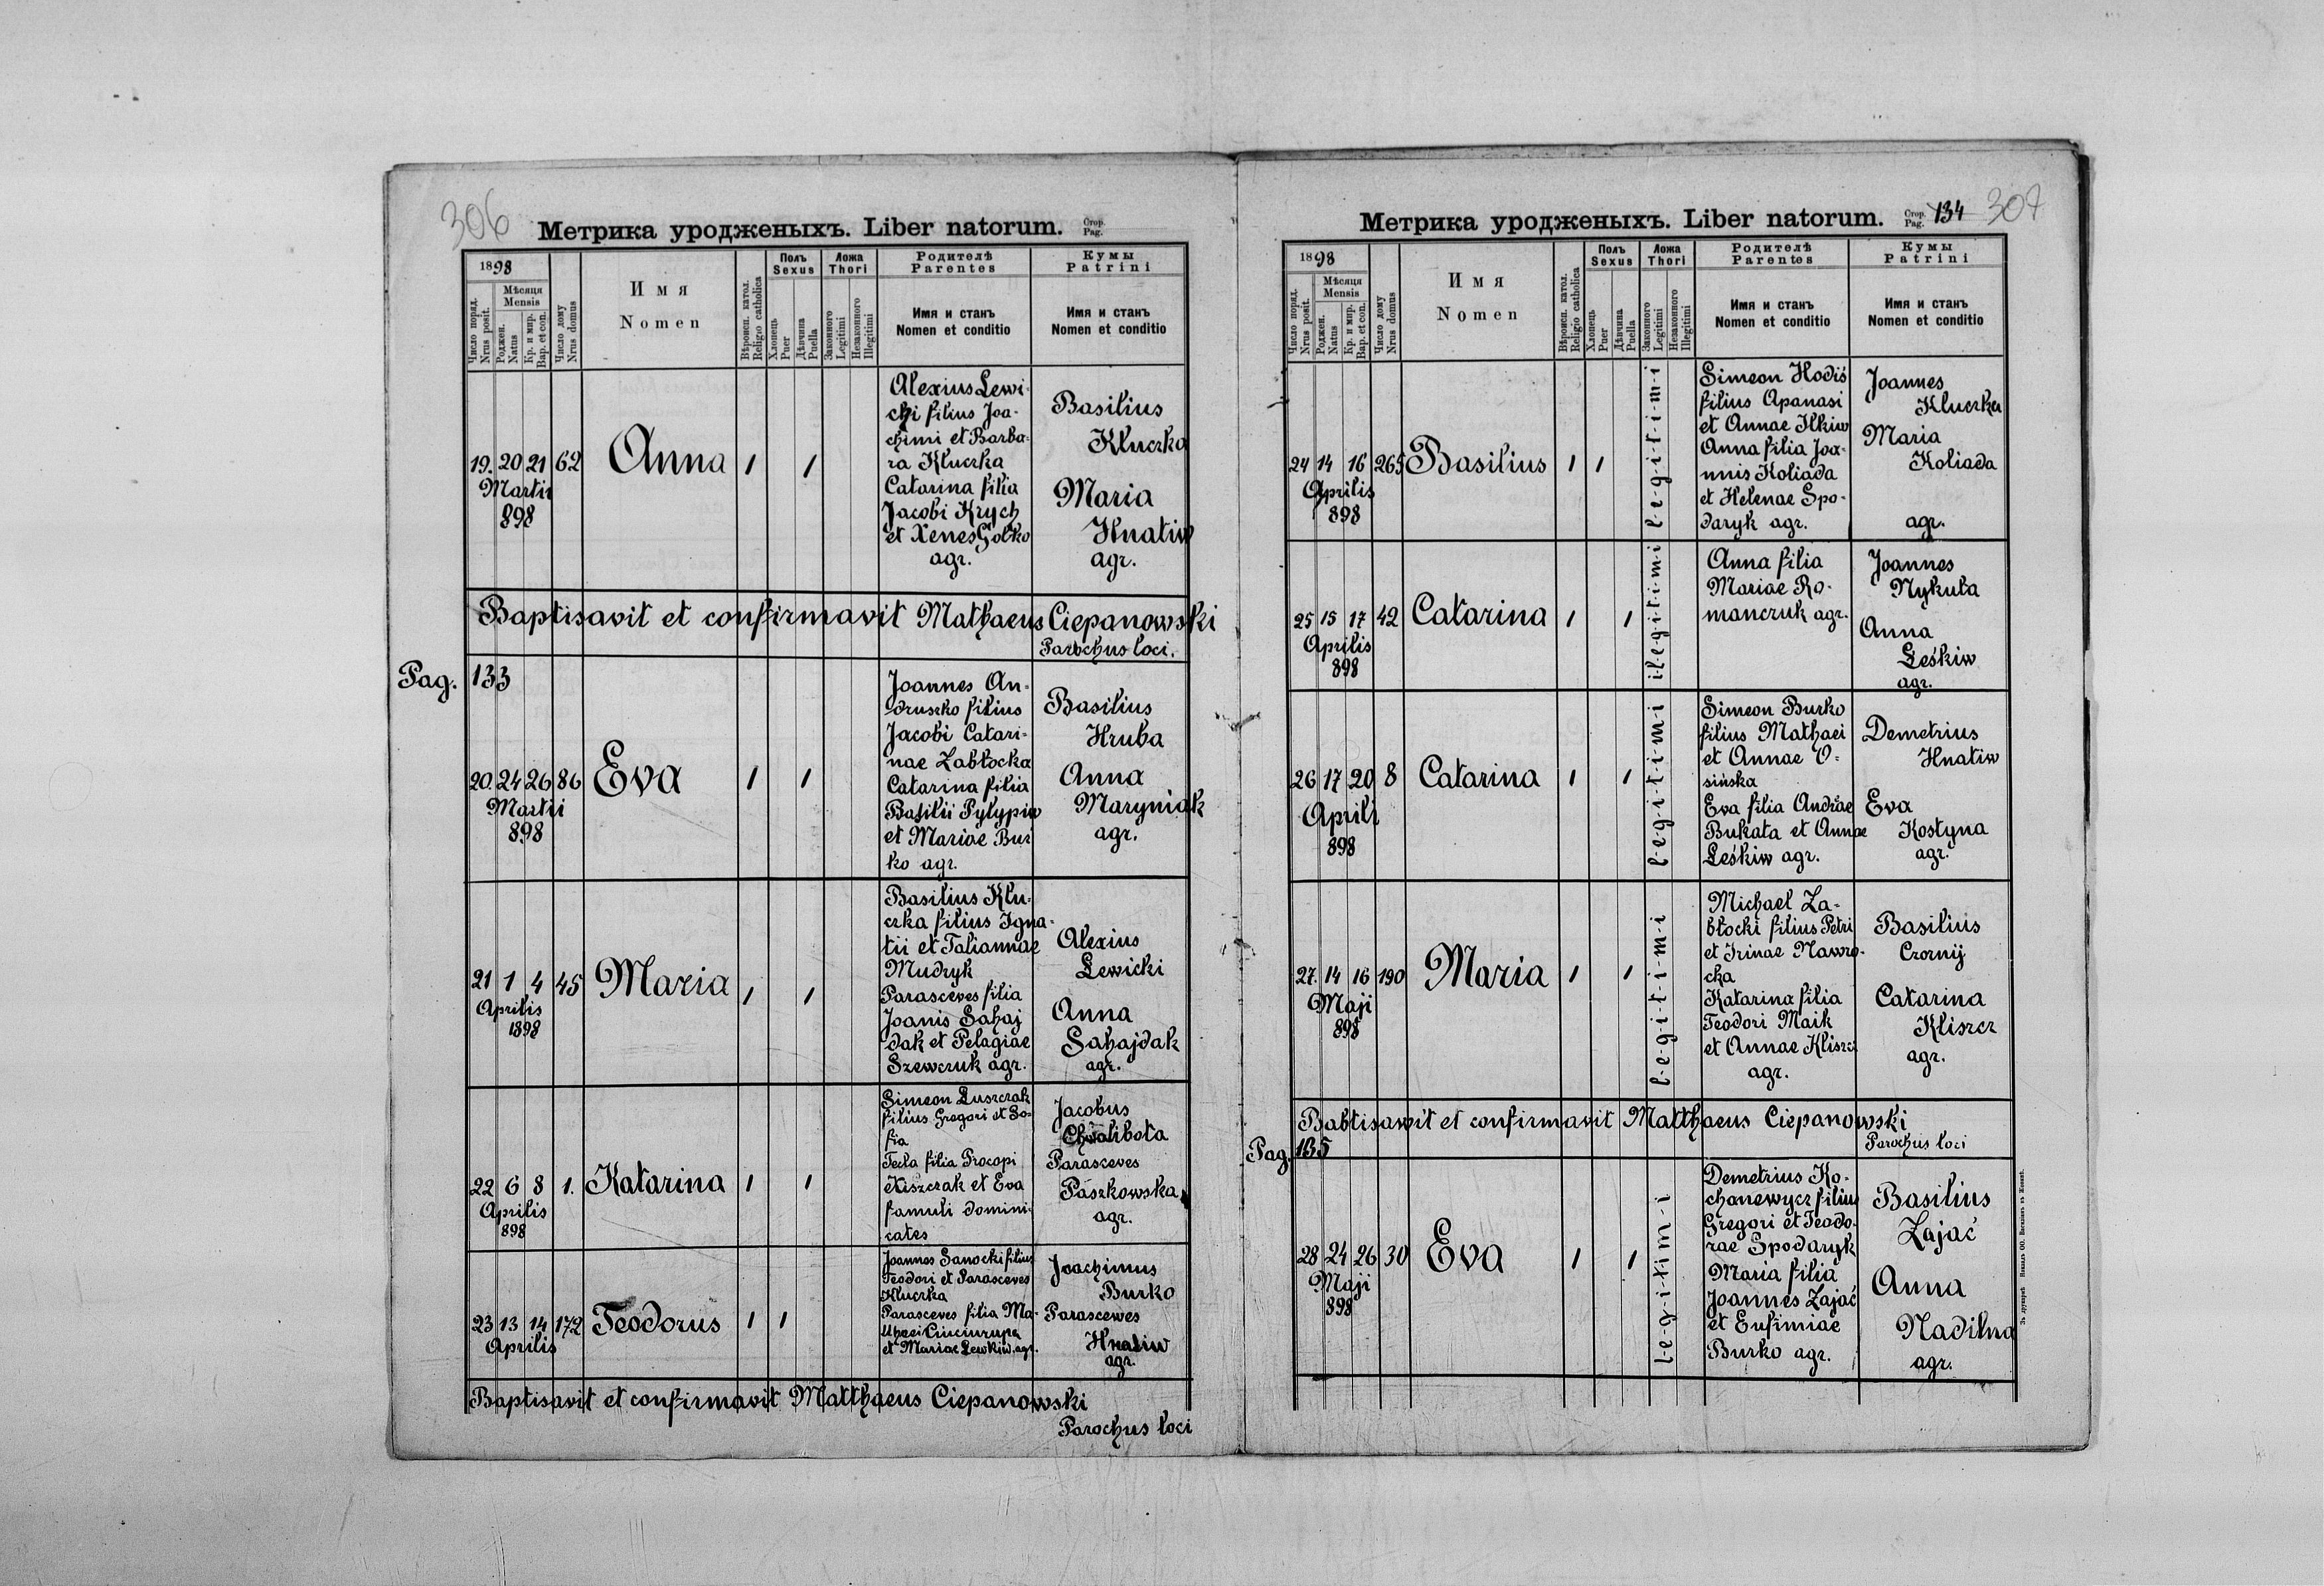 306
Метрика уродженыхъ. Liber natorum. Стор. Pag.
1898
Число поряд. Nrus posit.
Мѣсяця Mensis
Роджен. Natus
Кр. и мир. Bap. et con.
Число дому Nrus domus
Имя
Nomen
Вѣроисп. катол. Religio catholica
Полъ
Sexus
Хлопець Puer
Дѣвчина Puella
Ложа
Thori
Законного Legitimi
Незаконного Illegitimi
Родителѣ
Parentes
Имя и станъ
Nomen et conditio
Кумы
Patrini
Имя и станъ
Nomen et conditio
19. 20 21 62 Anna 1 1
Martii
898
Alexius Lewi-
chi filius Joa-
chimi et Barba-
ra Kluczka
Catarina filia
Jacobi Krych
et Xenes Golko
agr.
Basilius
Kluczka
Maria
Hnatiw
agr.
Baptisavit et confirmavit Mathaeus Ciepanowski
Parochus loci.
Pag. 133
20. 24 26 86 Eva 1 1
Martii
898
Joannes An-
druszko filius
Jacobi Catari-
nae Zabłocka
Catarina filia
Basilii Pylypiw
et Mariae Bur
ko agr.
Basilius
Hruba
Anna
Maryniak
agr.
21 1 4 45 Maria 1 1
Aprilis
1898
Basilius Klu-
czka filius Igna-
tii et Taliannae
Mudryk
Parasceves filia
Joanis Sahaj
dak et Pelagiae
Szewczuk agr.
Alexius
Lewicki
Anna
Sahajdak
agr.
22 6 8 1. Katarina 1 1
Aprilis
898
Simeon Łuszczak
filius Gregori et So-
fia
Tecla filia Procopi
Kiszczak et Eva
famuli domini-
cates
Jacobus
Chwalibota
Parasceves
Paszkowska
agr.
23 13 14 172 Teodorus 1 1
Aprilis
Joannes Sanocki filius
Teodori et Parasceves
Kluczka
Parasceves filia Ma-
thaei Ciuciurupa
et Mariae Lewkiw agr.
Joachimus
Burko
Parascewes
Hnatiw
agr.
Baptisavit et confirmavit Matthaeus Ciepanowski
Parochus loci
Метрика уродженыхъ. Liber natorum. Стор. Pag. 134
307
1898
Число поряд. Nrus posit.
Мѣсяця Mensis
Роджен. Natus
Кр. и мир. Bap. et con.
Число дому Nrus domus
Имя
Nomen
Вѣроисп. катол. Religio catholica
Полъ
Sexus
Хлопець Puer
Дѣвчина Puella
Ложа
Thori
Законного Legitimi
Незаконного Illegitimi
Родителѣ
Parentes
Имя и станъ
Nomen et conditio
Кумы
Patrini
Имя и станъ
Nomen et conditio
24 14 16 265 Basilius 1 1 l-e-g-i-t-i-m-i
Aprilis
898
Simeon Hodiś
filius Apanasi
et Annae Ilkiw
Anna filia Joa-
nnis Koliada
et Helenae Spo-
daryk agr.
Joannes
Kluczka
Maria
Koliada
agr.
25 15 17 42 Catarina 1 1 il-e-g-i-t-i-m-i
Aprilis
898
Anna filia
Mariae Ro-
manczuk agr.
Joannes
Nykuła
Anna
Leśkiw
agr.
26 17 20 8 Catarina 1 1 l-e-g-i-t-i-m-i
Aprili
898
Simeon Burko
filius Mathaei
et Annae O-
sińska
Eva filia Andrae
Bukata et Annae
Leśkiw agr.
Demetrius
Hnatiw
Eva
Kostyna
agr.
27. 14 16 190 Maria 1 1 l-e-g-i-t-i-m-i
Maji
898
Michael Za-
błocki filius Petri
et Irinae Nawro-
cka
Katarina filia
Teodori Maik
et Annae Kliszcz
agr.
Basilius
Czornij
Catarina
Kliszcz
agr.
Babtisawit et confirmavit Matthaeus Ciepanowski
Parochus loci
Pag. 135
28 24 26 30 Eva 1 1 l-e-g-i-t-i-m-i
Maji
898
Demetrius Ko-
chanewycz filius
Gregori et Teodo-
rae Spodaryk
Maria filia
Joannes Zajać
et Eufimiae
Burko agr.
Basilius
Zajać
Anna
Nadilna
agr.